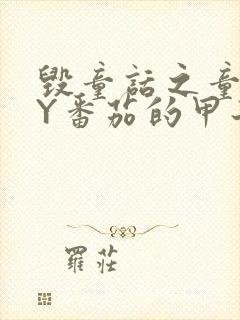 毁童话之童
Y番茄的甲
羅莊